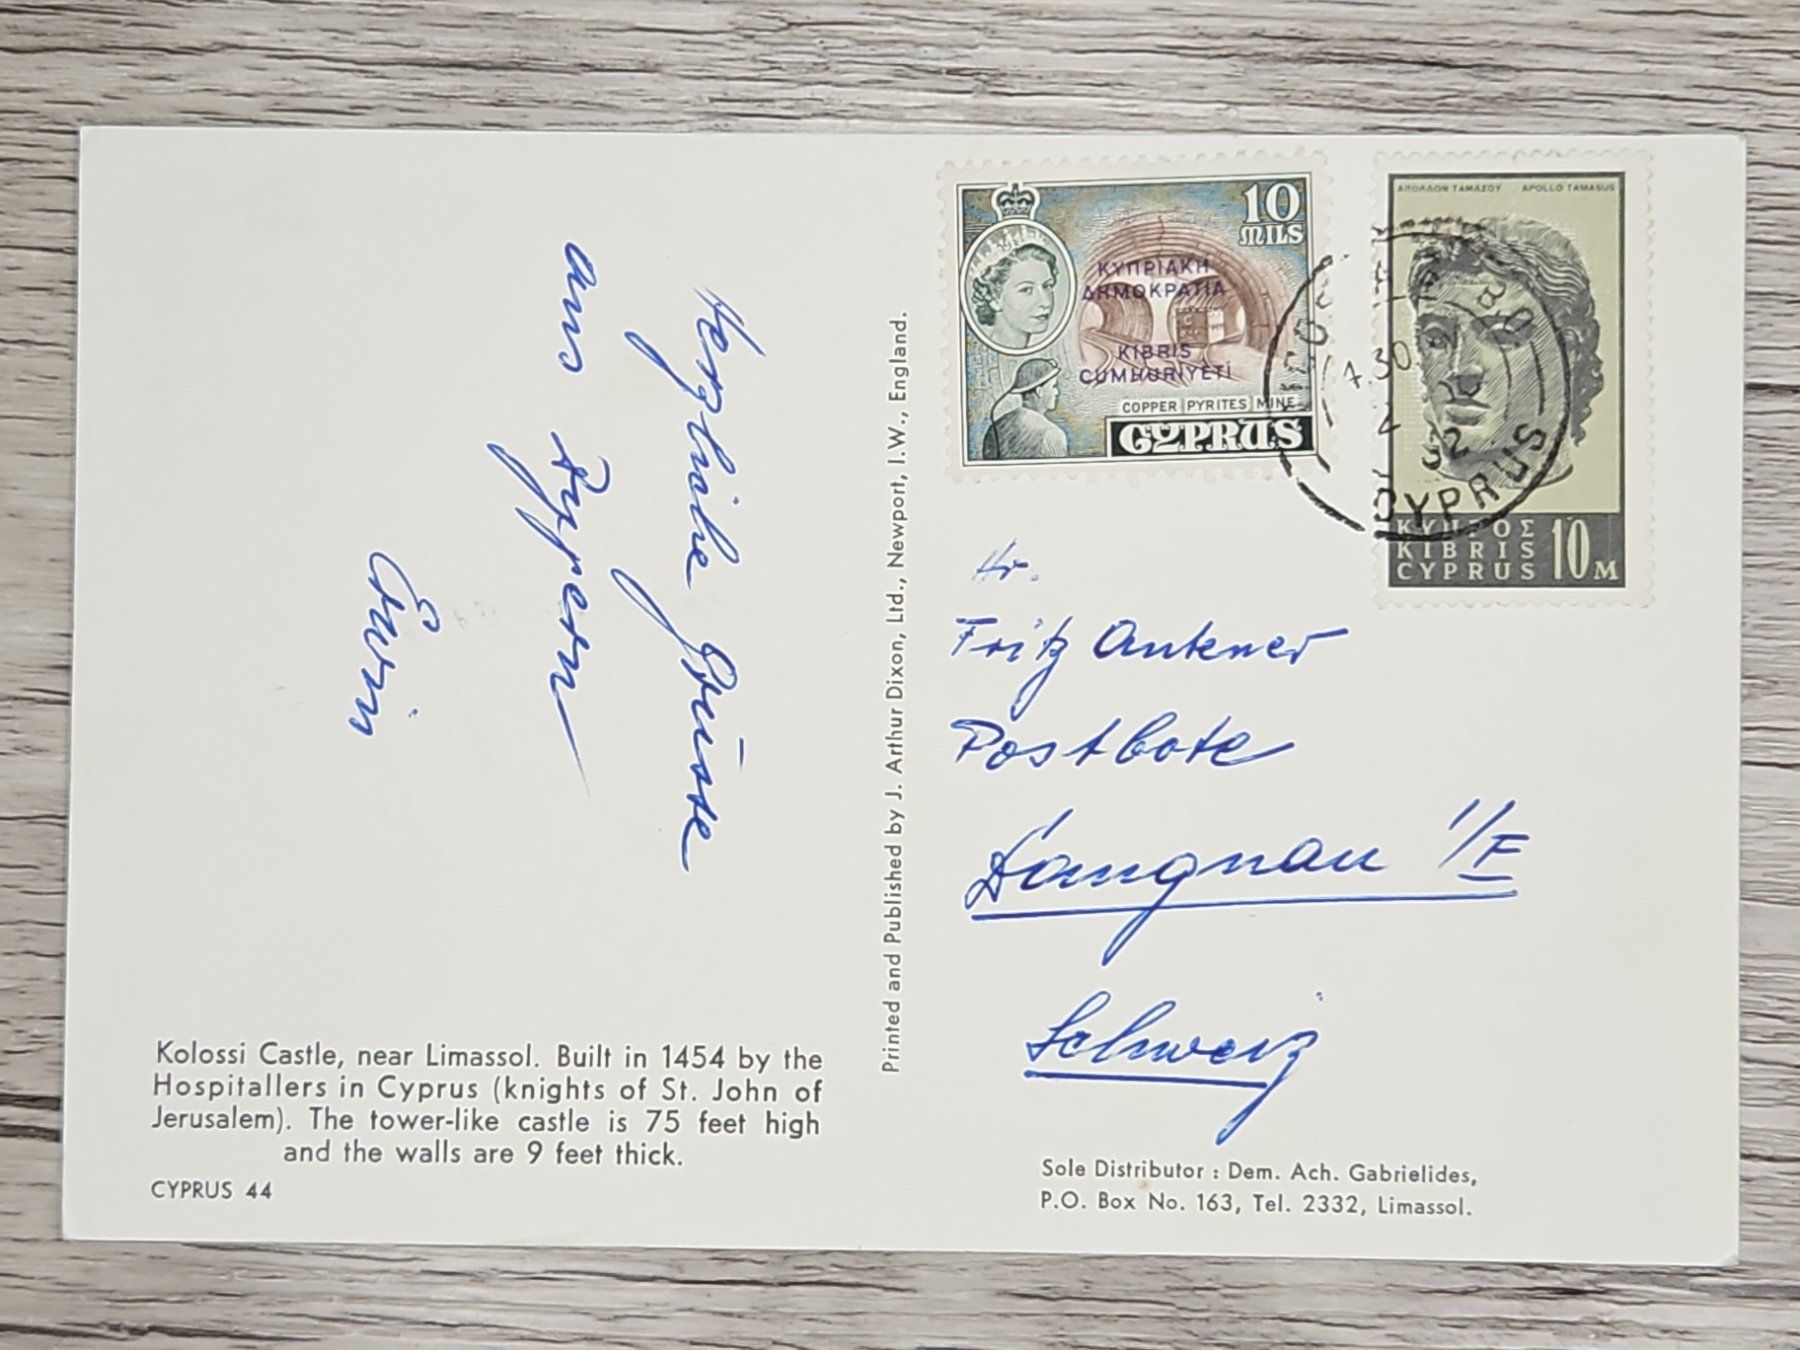 Herzliche Grüsse
aus Zypern
Erwin
Kolossi Castle, near Limassol. Built in 1454 by the
Hospitallers in Cyprus (knights of St. John of
Jerusalem). The tower-like castle is 75 feet high
and the walls are 9 feet thick.
CYPRUS 44
Printed and Published by J. Arthur Dixon, Ltd., Newport, I.W., England.
10
MILS
ΚΥΠΡΙΑΚΗ
ΔΗΜΟΚΡΑΤΙΑ
KIBRIS
CUMHURİYETİ
COPPER PYRITES MINE
CYPRUS
ΑΠΟΛΛΩΝ ΤΑΜΑΣΟΥ APOLLO TAMASUS
4.30
CYPRUS
ΚΥΠΡΟΣ
KIBRIS
CYPRUS 10 M
Hr.
Fritz Ankner
Postbote
Langnau i/E
Schweiz
Sole Distributor : Dem. Ach. Gabrielides,
P.O. Box No. 163, Tel. 2332, Limassol.